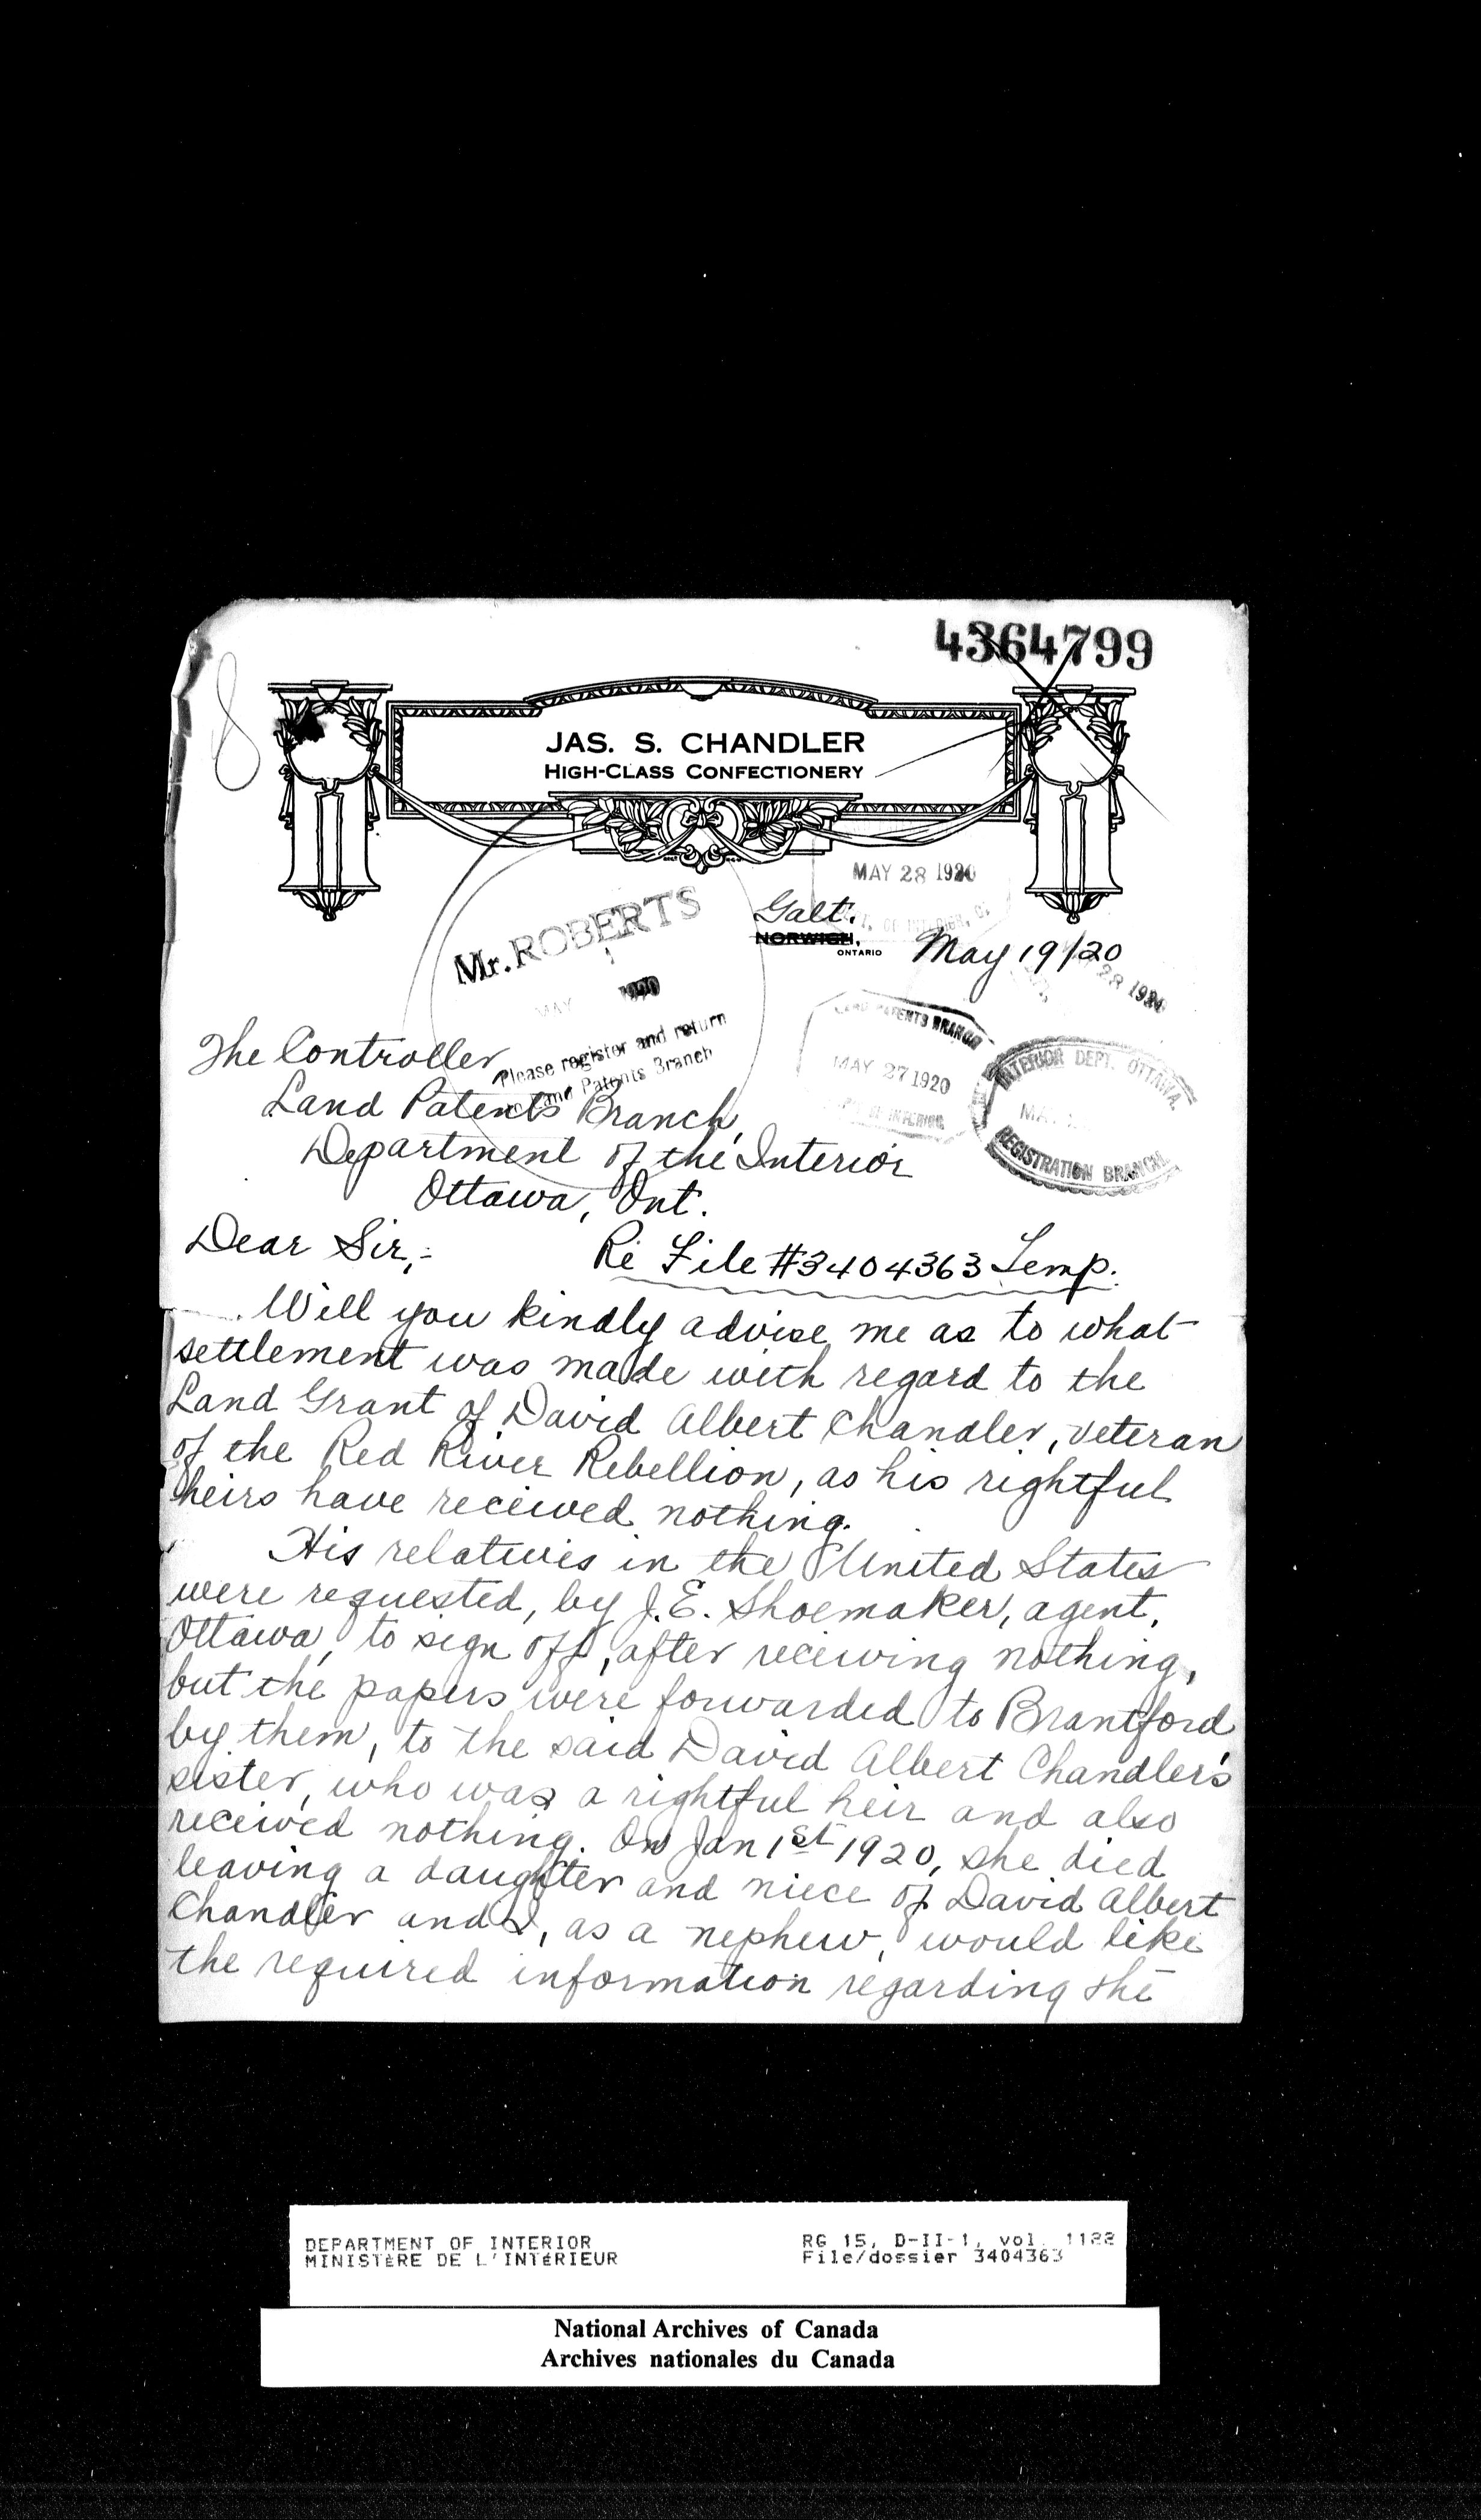 4364799
8
JAS. S. CHANDLER
HIGH-CLASS CONFECTIONERY
MAY 28 1920
Mr. ROBERTS
MAY 1920
Please register and return
to Land Patents Branch
Galt,
NORWICH,
ONTARIO
May 19/20
28 1920
LAND PATENTS BRANCH
MAY 27 1920
DEPT OF INTERIOR
INTERIOR DEPT. OTTAWA.
MAY
REGISTRATION BRANCH
The Controller
Land Patents Branch,
Department of the Interior
Ottawa, Ont.
Dear Sir,- Re File #3404363 Temp.
Will you kindly advise me as to what
settlement was made with regard to the
Land Grant of David Albert Chandler, veteran
of the Red River Rebellion, as his rightful
heirs have received nothing.
His relatives in the United States
were requested, by J.E. Shoemaker, agent,
Ottawa, to sign off, after receiving nothing,
but the papers were forwarded to Brantford
by them, to the said David Albert Chandler's
sister, who was a rightful heir and also
received nothing. On Jan 1st 1920, she died
leaving a daughter and niece of David Albert
Chandler and I, as a nephew, would like
the required information regarding the
DEPARTMENT OF INTERIOR
MINISTÈRE DE L'INTÉRIEUR
RG 15, D-II-1, vol. 1122
File/dossier 3404363
National Archives of Canada
Archives nationales du Canada